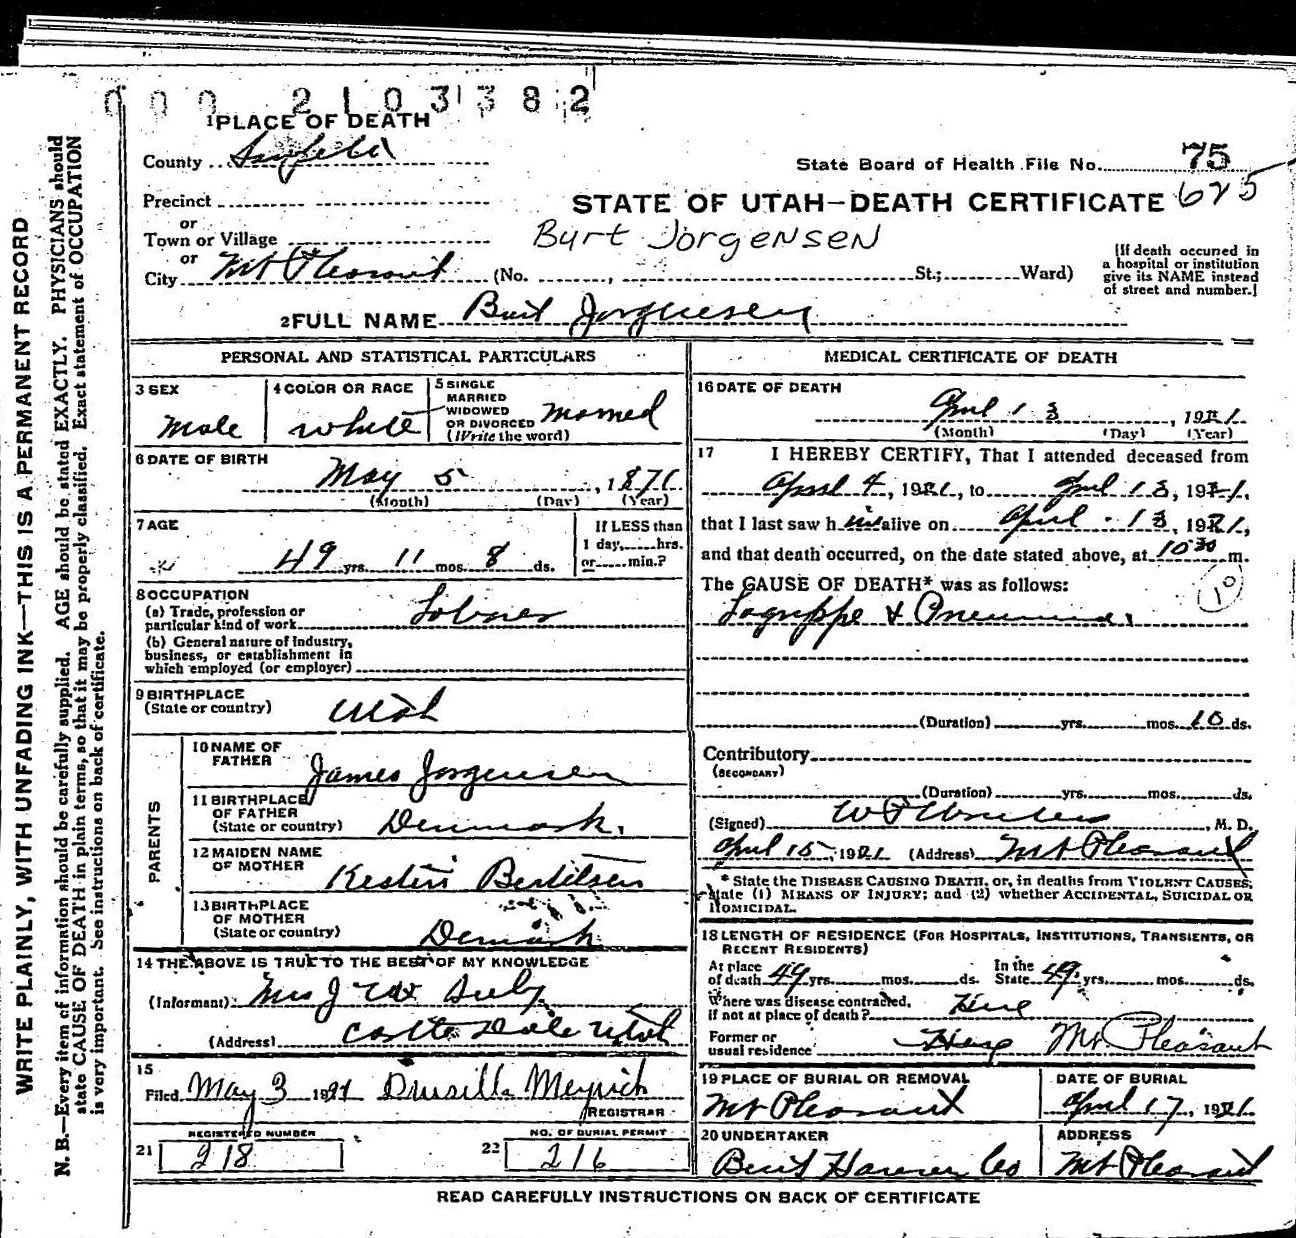 WRITE PLAINLY, WITH UNFADING INK—THIS IS A PERMANENT RECORD
N. B.—Every item of information should be carefully supplied. AGE should be stated EXACTLY. PHYSICIANS should
state CAUSE OF DEATH in plain terms, so that it may be properly classified. Exact statement of OCCUPATION
is very important. See instructions on back of certificate.
000 2103382
1PLACE OF DEATH
County
State Board of Health File No. 75
Precinct
STATE OF UTAH—DEATH CERTIFICATE 625
or
Town or Village
Burt Jorgensen
or
City Mt Pleasant (No. , St.; Ward)
[If death occured in
a hospital or institution
give its NAME instead
of street and number.]
2FULL NAME Burt Jorgensen
PERSONAL AND STATISTICAL PARTICULARS
3 SEX
Male
4 COLOR OR RACE
White
5 SINGLE
MARRIED
WIDOWED
OR DIVORCED
(Write the word)
Married
6 DATE OF BIRTH
May 5, 1871
(Month) (Day) (Year)
7 AGE
49 yrs. 11 mos. 8 ds.
If LESS than
1 day, hrs.
or min.?
8 OCCUPATION
(a) Trade, profession or
particular kind of work
(b) General nature of industry,
business, or establishment in
which employed (or employer)
9 BIRTHPLACE
(State or country) Utah
PARENTS
10 NAME OF
FATHER James Jorgensen
11 BIRTHPLACE
OF FATHER
(State or country) Denmark.
12 MAIDEN NAME
OF MOTHER Bertelsen
13 BIRTHPLACE
OF MOTHER
(State or country) Denmark
14 THE ABOVE IS TRUE TO THE BEST OF MY KNOWLEDGE
(Informant) Mrs J Seely
(Address) Castle Dale Utah
15
Filed May 3 1921 Drusilla
REGISTRAR
REGISTERED NUMBER
21 218
NO. OF BURIAL PERMIT
22 216
MEDICAL CERTIFICATE OF DEATH
16 DATE OF DEATH
April 13, 1921
(Month) (Day) (Year)
17 I HEREBY CERTIFY, That I attended deceased from
April 4, 1921, to April 13, 1921,
that I last saw h im alive on April 13, 1921,
and that death occurred, on the date stated above, at 10 30 m.
The CAUSE OF DEATH* was as follows:
10
Lagrippe & Pneumonia
(Duration) yrs. mos. 10 ds.
Contributory
(SECONDARY)
(Duration) yrs. mos. ds.
(Signed) , M. D.
April 15, 1921 (Address) Mt Pleasant
* State the DISEASE CAUSING DEATH, or, in deaths from VIOLENT CAUSES,
state (1) MEANS OF INJURY; and (2) whether ACCIDENTAL, SUICIDAL OR
HOMICIDAL.
18 LENGTH OF RESIDENCE (FOR HOSPITALS, INSTITUTIONS, TRANSIENTS, OR
RECENT RESIDENTS)
At place
of death 49 yrs. mos. ds.
In the
State 49 yrs. mos. ds.
Where was disease contracted,
if not at place of death? Here
Former or
usual residence Here Mt Pleasant
19 PLACE OF BURIAL OR REMOVAL
Mt Pleasant
DATE OF BURIAL
April 17, 1921
20 UNDERTAKER
Co
ADDRESS
Mt Pleasant
READ CAREFULLY INSTRUCTIONS ON BACK OF CERTIFICATE